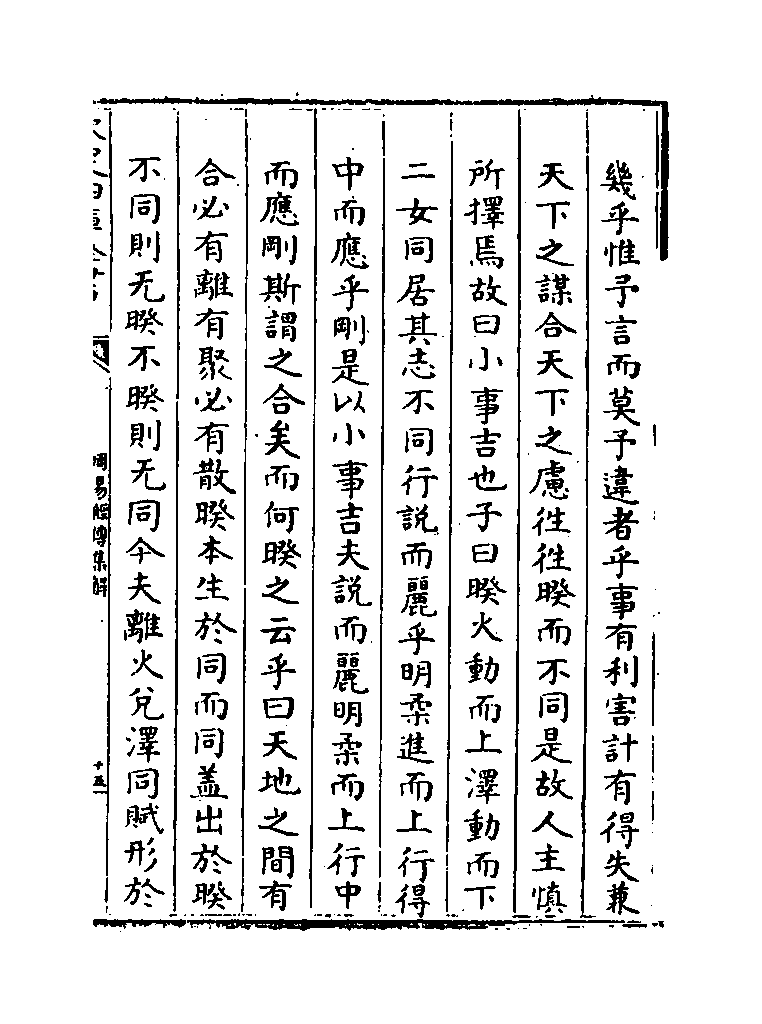 幾乎惟予言而莫予違者乎事有利害計有得失兼
天下之謀合天下之慮徃徃睽而不同是故人主慎
所擇焉故曰小事吉也子曰睽火動而上澤動而下
二女同居其志不同行説而麗乎明柔進而上行得
中而應乎剛是以小事吉夫説而麗明柔而上行中
而應剛斯謂之合矣而何睽之云乎曰天地之間有
合必有離有聚必有散睽本生於同而同盖出於睽
不同則无睽不睽則无同今夫離火兌澤同賦形於
周易經傳集解
十五